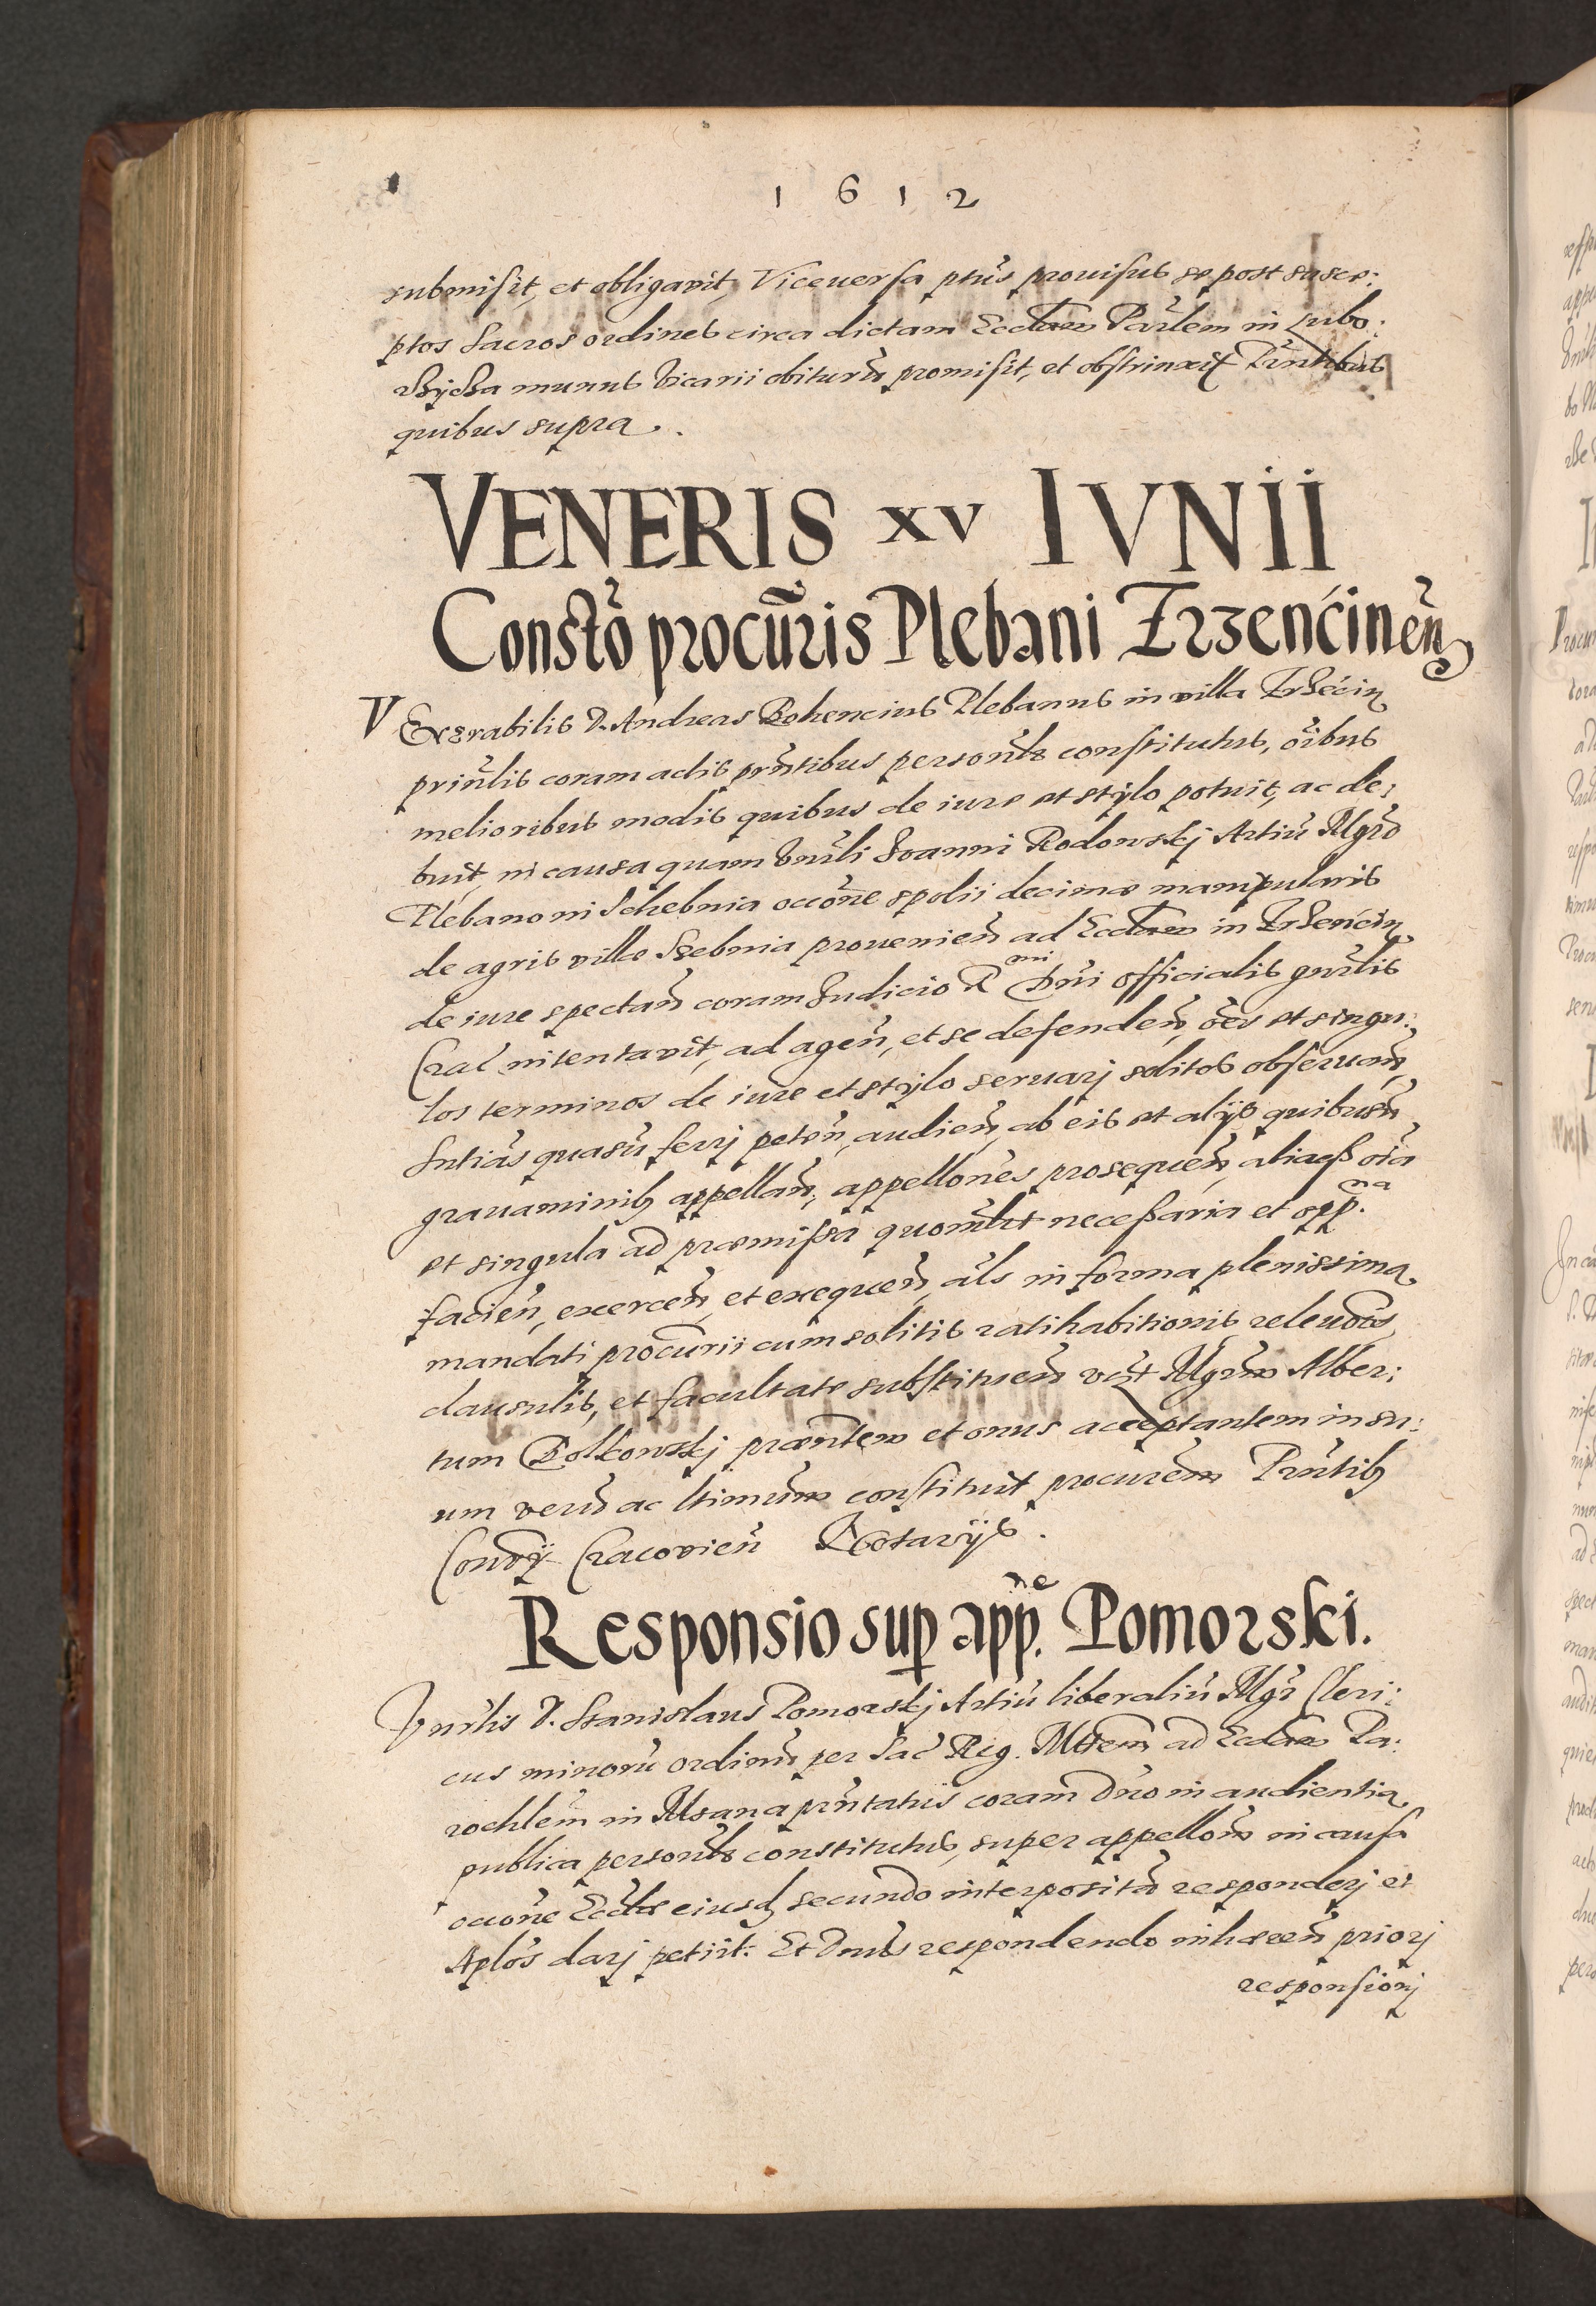 1612
submisit, et obligavit, Viceuersa ptus prouisus se post susce:
ptos Sacros ordines circa dictam Ecclam Parlem in Lubo:
munus Vicarii obituru promisit, et obstrinxit Prntibus
quibus supra.
VENERIS XV IVNII
Constō procuris Plebani Trzenćinen
VEnerabilis D. Andreas Bohencius Plebanus in villa Trzećin
prinlis coram actis prntibus personlr constitutus, oibus
melioribus modis quibus de iure et stylo potuit, ac de:
buit, in causa quam Vnrli Joanni Rodowskj Artiu Mgro
Plebano in Schebnia occone spolii decimae manipularis
de agris villae Szebnia prouenien ad Ecclam in Trzenćin
de iure spectan coram Judicio R mi Dni Officialis gnrlis
Crac intentavit, ad agen, et se defenden, oes et singu:
los terminos de iure et stylo seruarj solitos obseruan,
Sntias quasuis ferrj peten, audien, ab eis et alijs quibusvis
grauaminib appellan, appellones prosequen, aliaq oia
et singula ad praemissa quomlt necessaria et opp. na
facien, exercen, et exequen, als in forma plenissima
mandati procurii cum solitis ratihabitionis releuaois
clausulis, et facultate substituen vnt Mgrm Alber:
tum Bolkowskj praentem et onus acceptantem in su:
um veru ac ltimum constituit procurem Prntib
Consrij Cracovien Notarijs.
Responsio sup app. ne Pomorski.
Vnrlis D. Stanislaus Pomorskj Artiu liberaliu Mgr Cleri:
cus minoru ordinu per Sac Reg. Mttem ad Ecclam Pa:
rochlem in Msana prntatus coram Dno in audientia
publica personlr constitutus, super appellom in causa
occone Ecclae eiusd secundo interposita responderj et
Aplos darj petiit. Et Dnus respondendo inhaeren priorj
responsionj